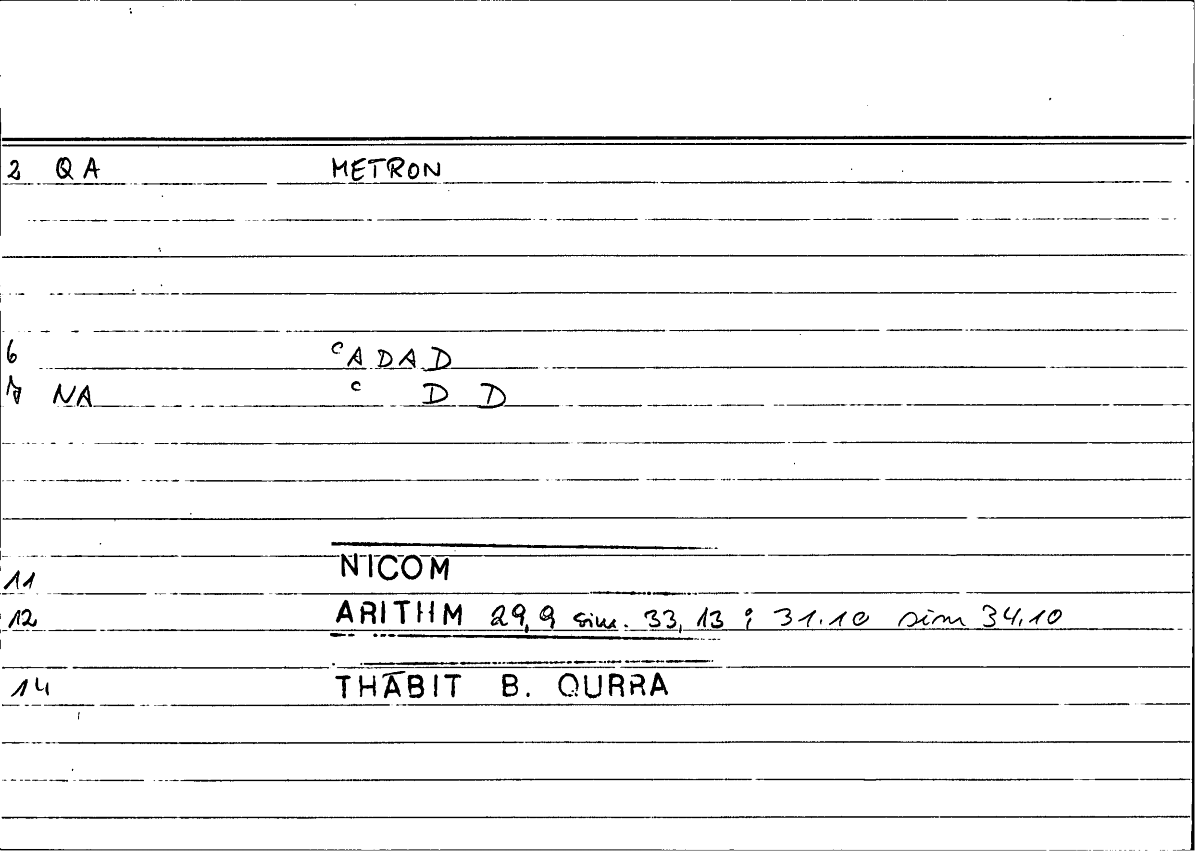 2 QA METRON
6 ᶜADAD
7 NA ᶜ D D
11 NICOM
12 ARITHM 29,9 sim. 33,13 ; 31.10 sim 34.10
14 THĀBIT B. QURRA